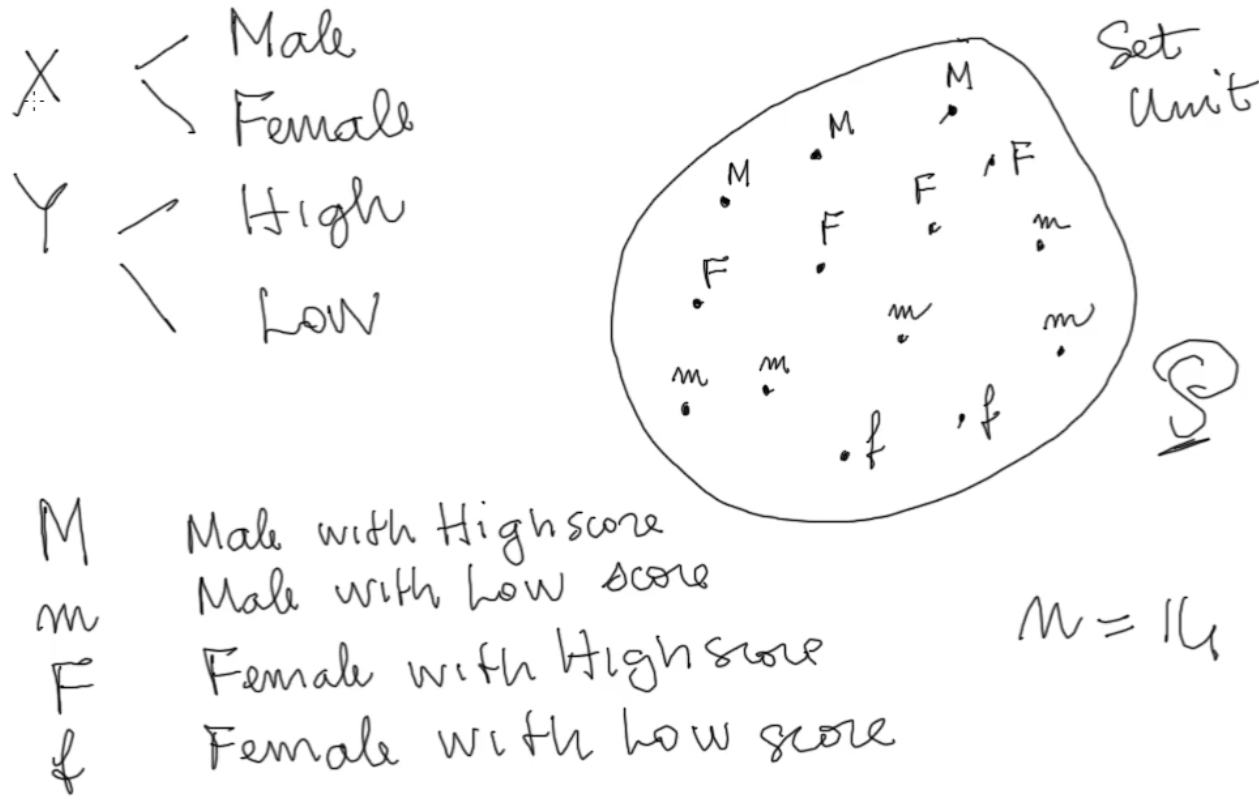 X
Male
Female
Y
High
Low
Set
Unit
M
M
M
F
F
F
F
m
m
m
m
m
f
f
S
M Male with High score
m Male with Low score
F Female with High score
f Female with Low score
n = 14